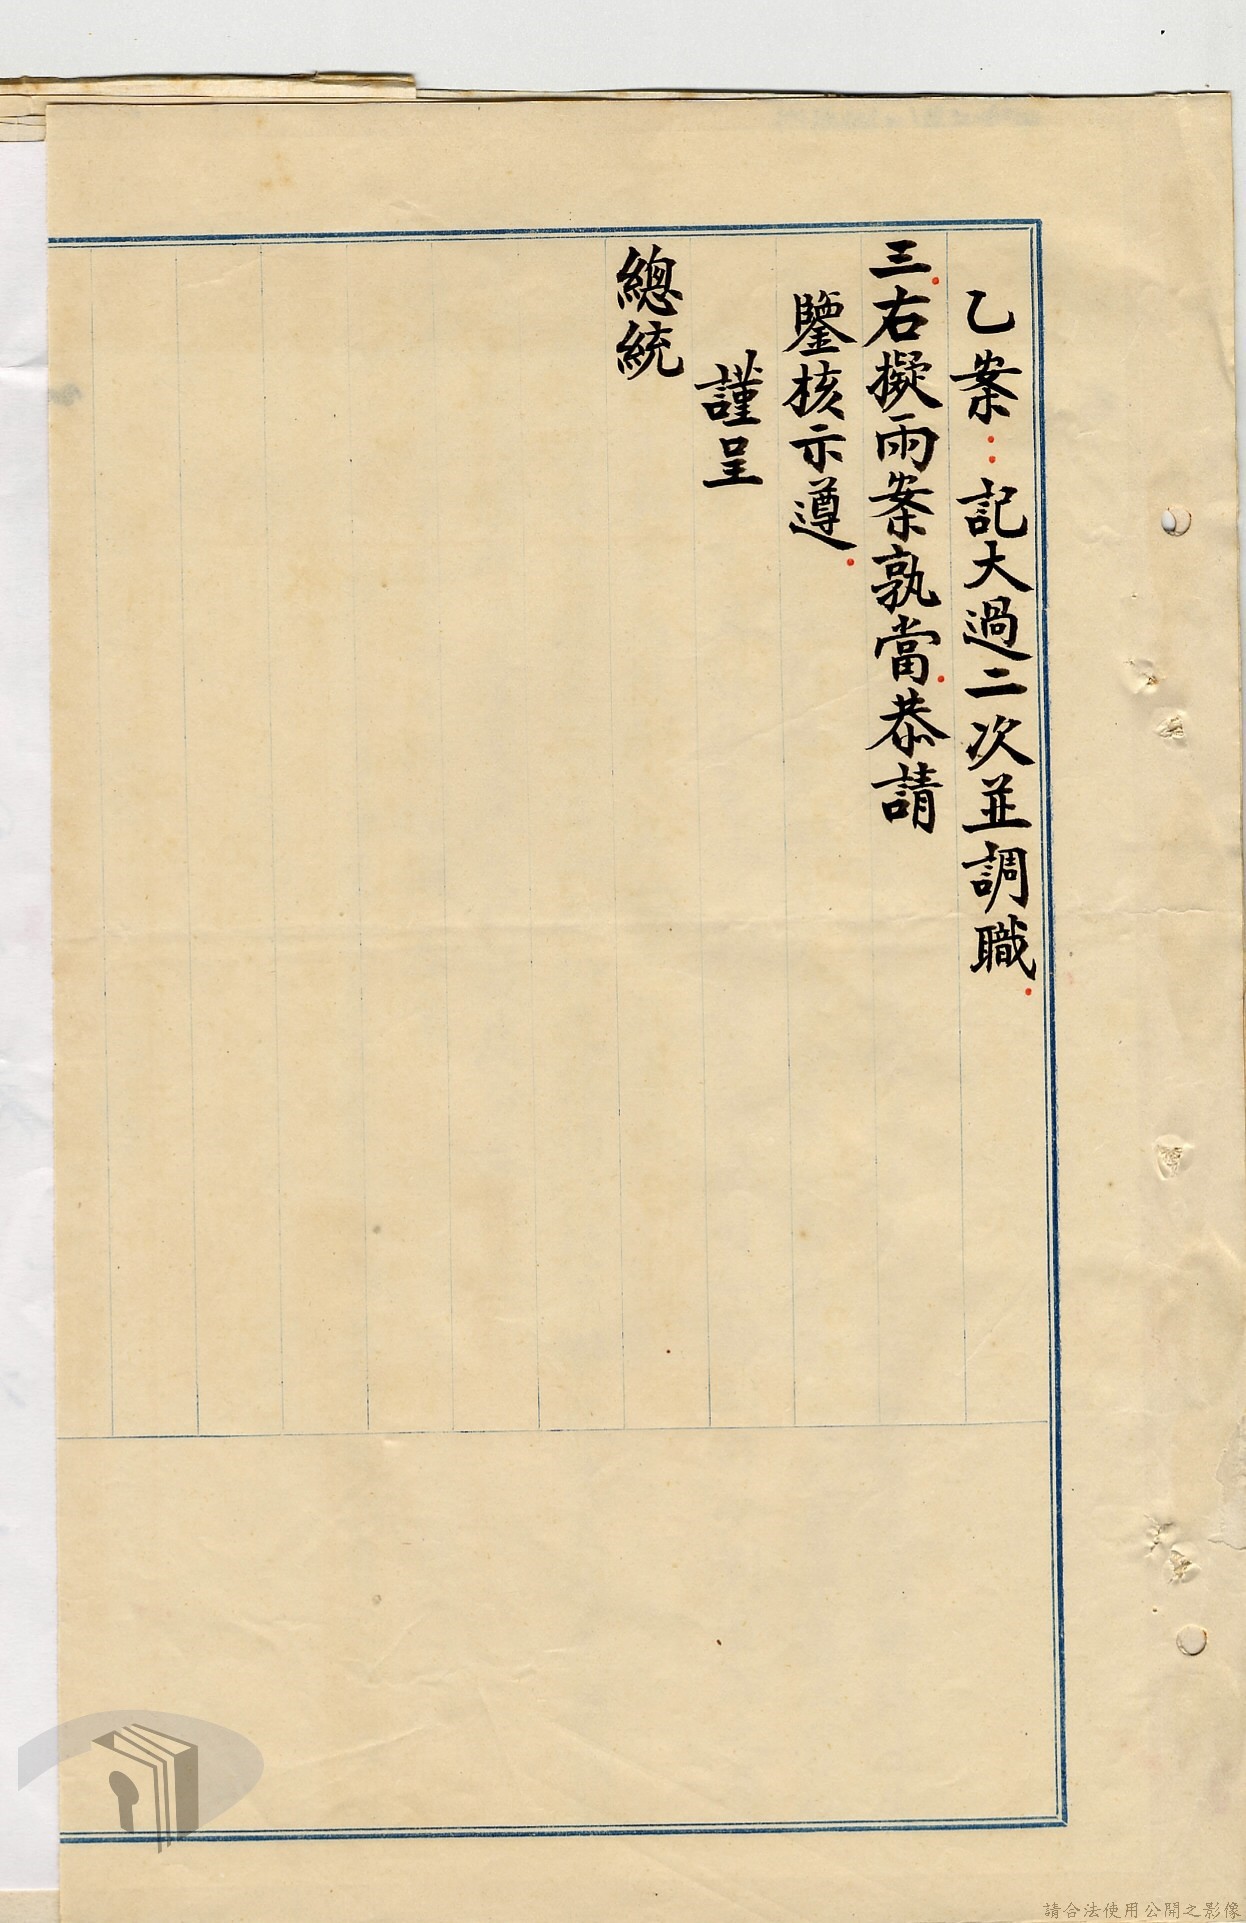 乙案：記大過二次並調職.
三.右擬兩案孰當.恭請
鑒核示遵.
謹呈
總統
請合法使用公開之影像